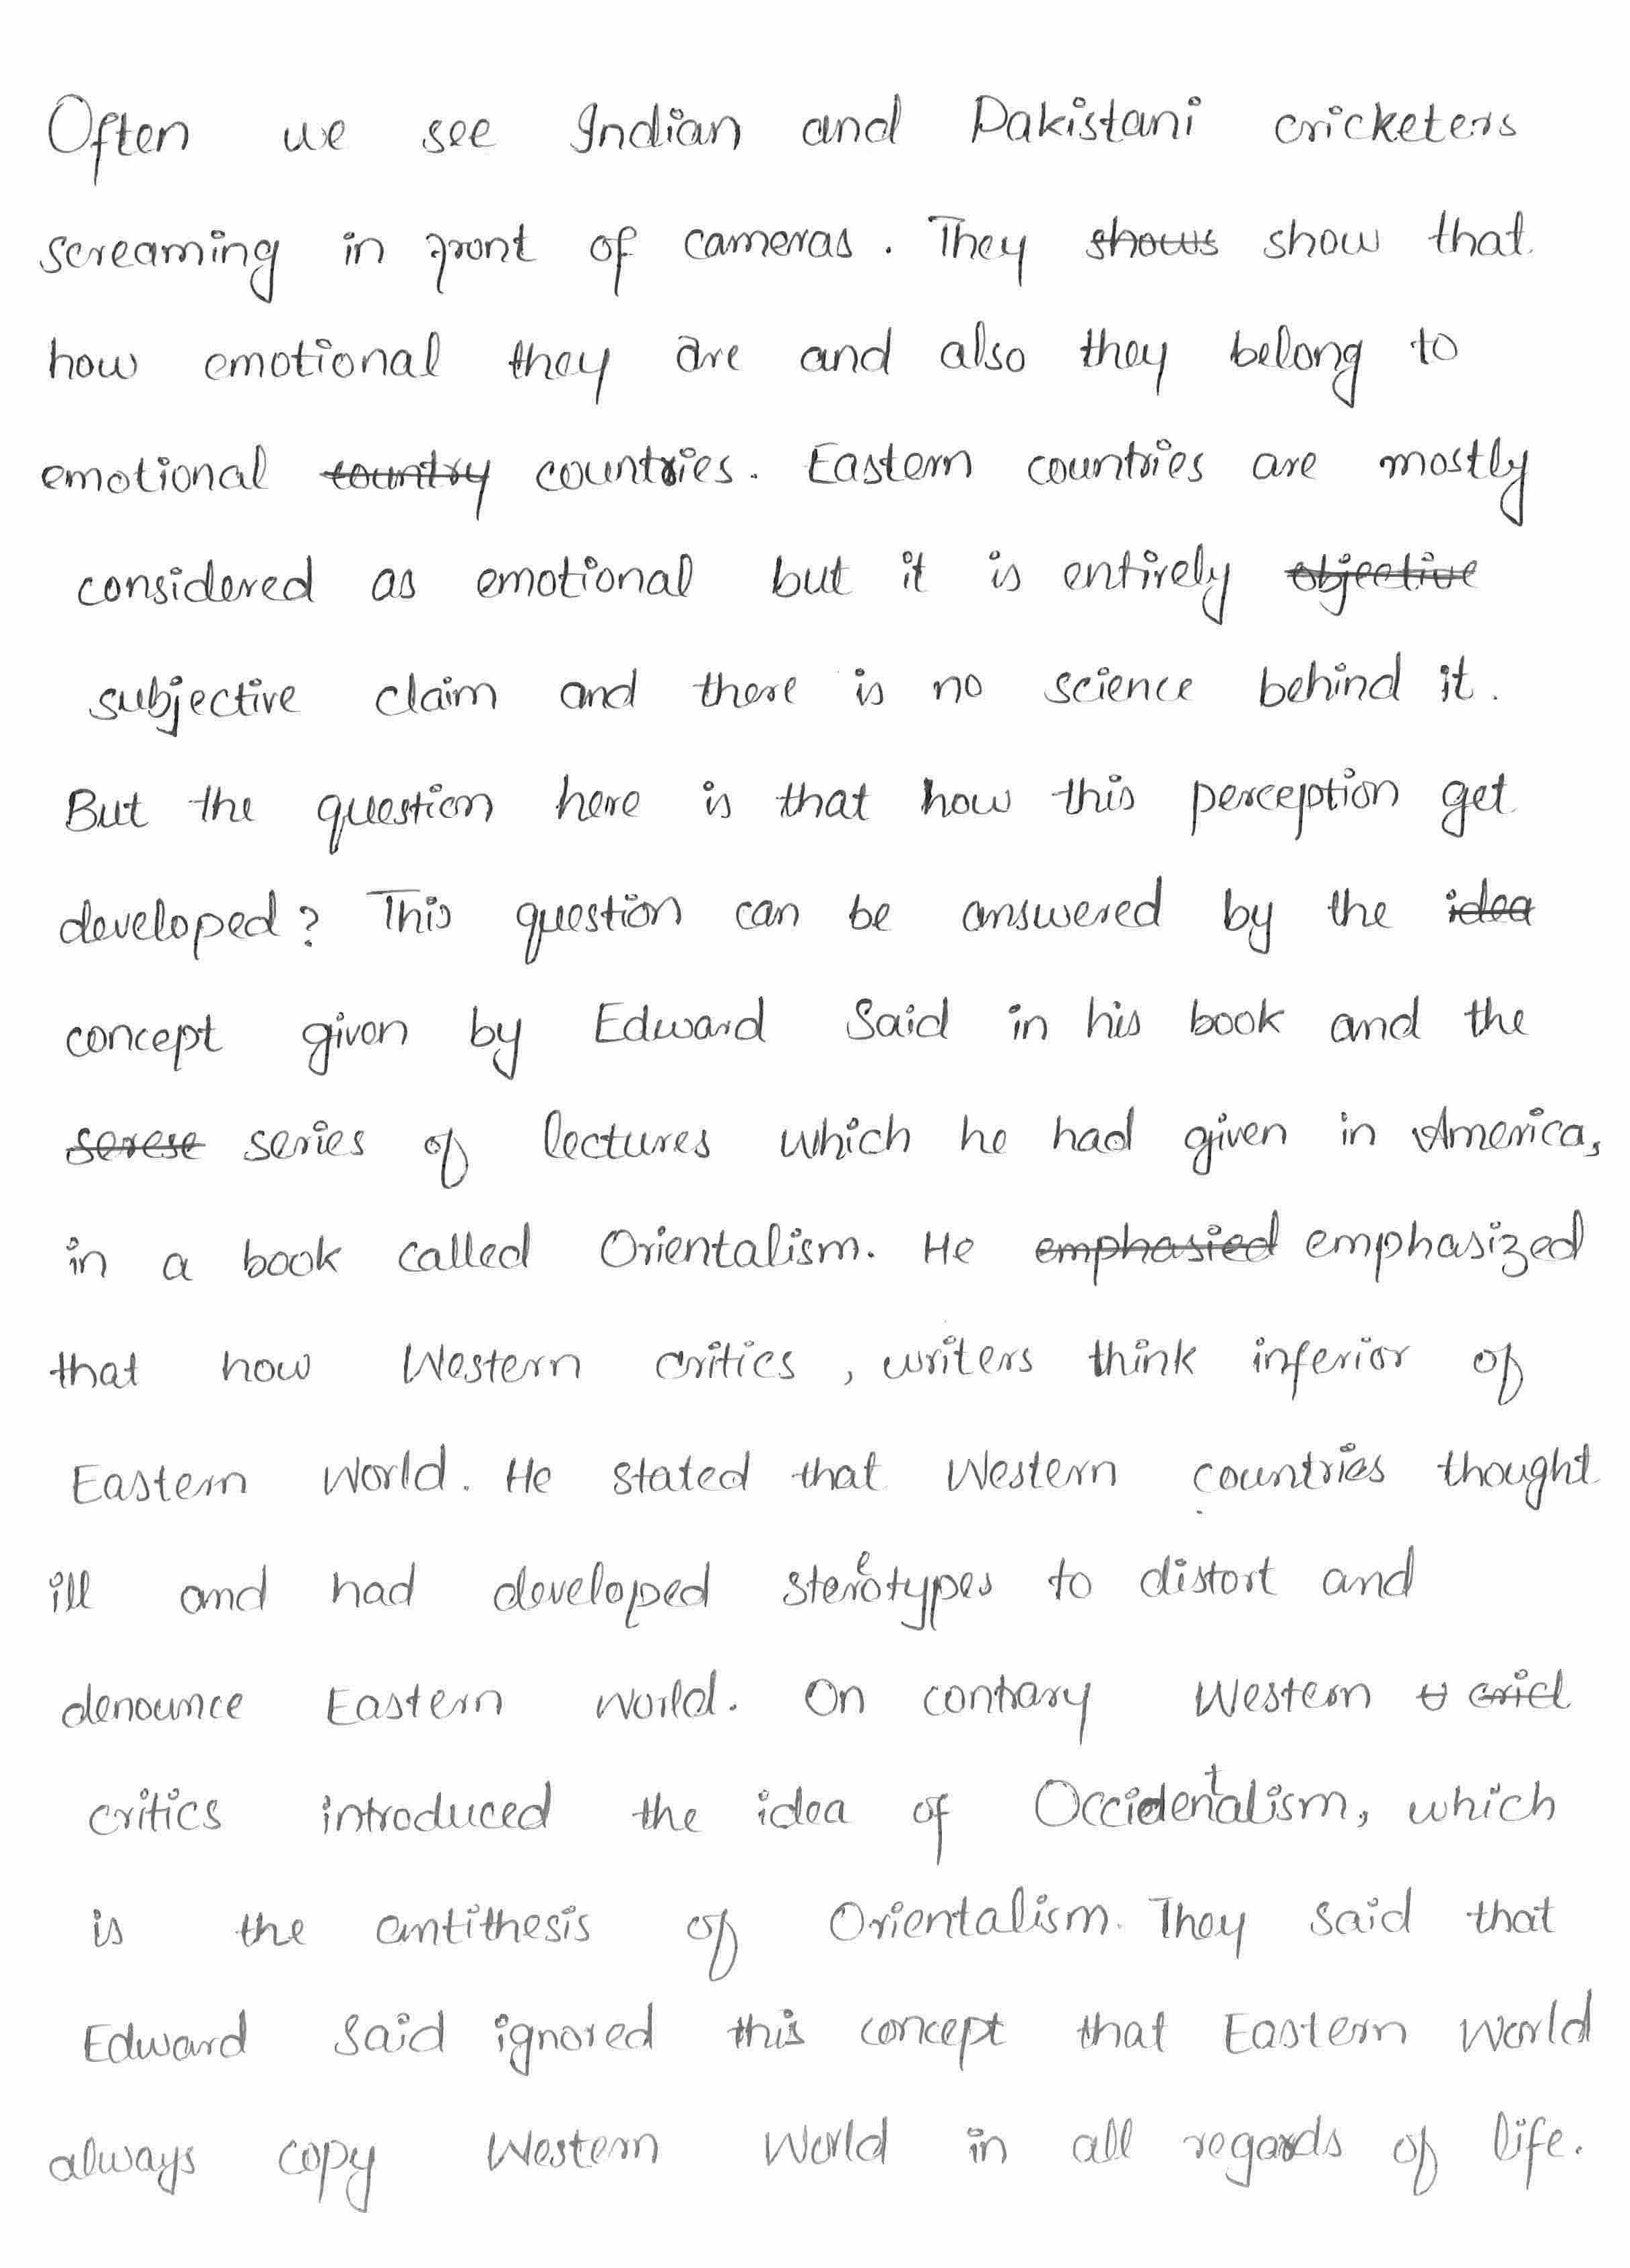 Often we see Indian and Pakistani cricketers
screaming in front of cameras. They shows show that
how emotional they are and also they belong to
emotional country countries. Eastern countries are mostly
considered as emotional but it is entirely objective
subjective claim and there is no science behind it.
But the question here is that how this perception get
developed? This question can be answered by the idea
concept given by Edward Said in his book and the
serese series of lectures which he had given in America,
in a book called Orientalism. He emphasied emphasized
that how Western critics, writers think inferior of
Eastern World. He stated that Western countries thought
ill and had developed stereotypes to distort and
denounce Eastern World. On contrary Western cricl
critics introduced the idea of Occidentalism, which
is the antithesis of Orientalism. They said that
Edward Said ignored this concept that Eastern World
always copy Western World in all regards of life.